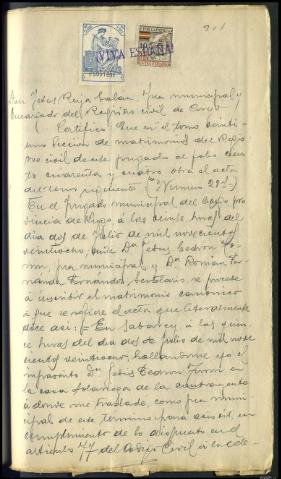 201
VIVA ESPAÑA!
Don Jesus Rioja Galan, Juez municipal y
encargado del Registro civil de
Certifico: Que en el tomo veinti-
uno Seccion de matrimonios del Regis-
tro civil de este juzgado al folio cien-
to cuarenta y cuatro obra el acta
del tenor siguiente (Numero 29)-
En el Juzgado municipal del pro-
vincia de Lugo, á las veinte horas del
día dos de Julio de mil novecientos
veintiocho, ante Dn Jesus Cedron
juez municipal, y Dn Roman Fer-
nandez Fernandez Secretario, se procede
á inscribir el matrimonio canonico
á que se refiere el acta que literalmente
dice asi: = En á las quin-
ce horas del día dos de Julio de mil nove
cientos veintiocho, hallandome yo el
infrascrito Dn Jesus Cedron en
la casa de la contrayente
á donde me traslade, como juez muni-
cipal de este termino para asistir, en
cumplimiento de lo dispuesto en el
articulo 77 del Codigo Civil á la cele-